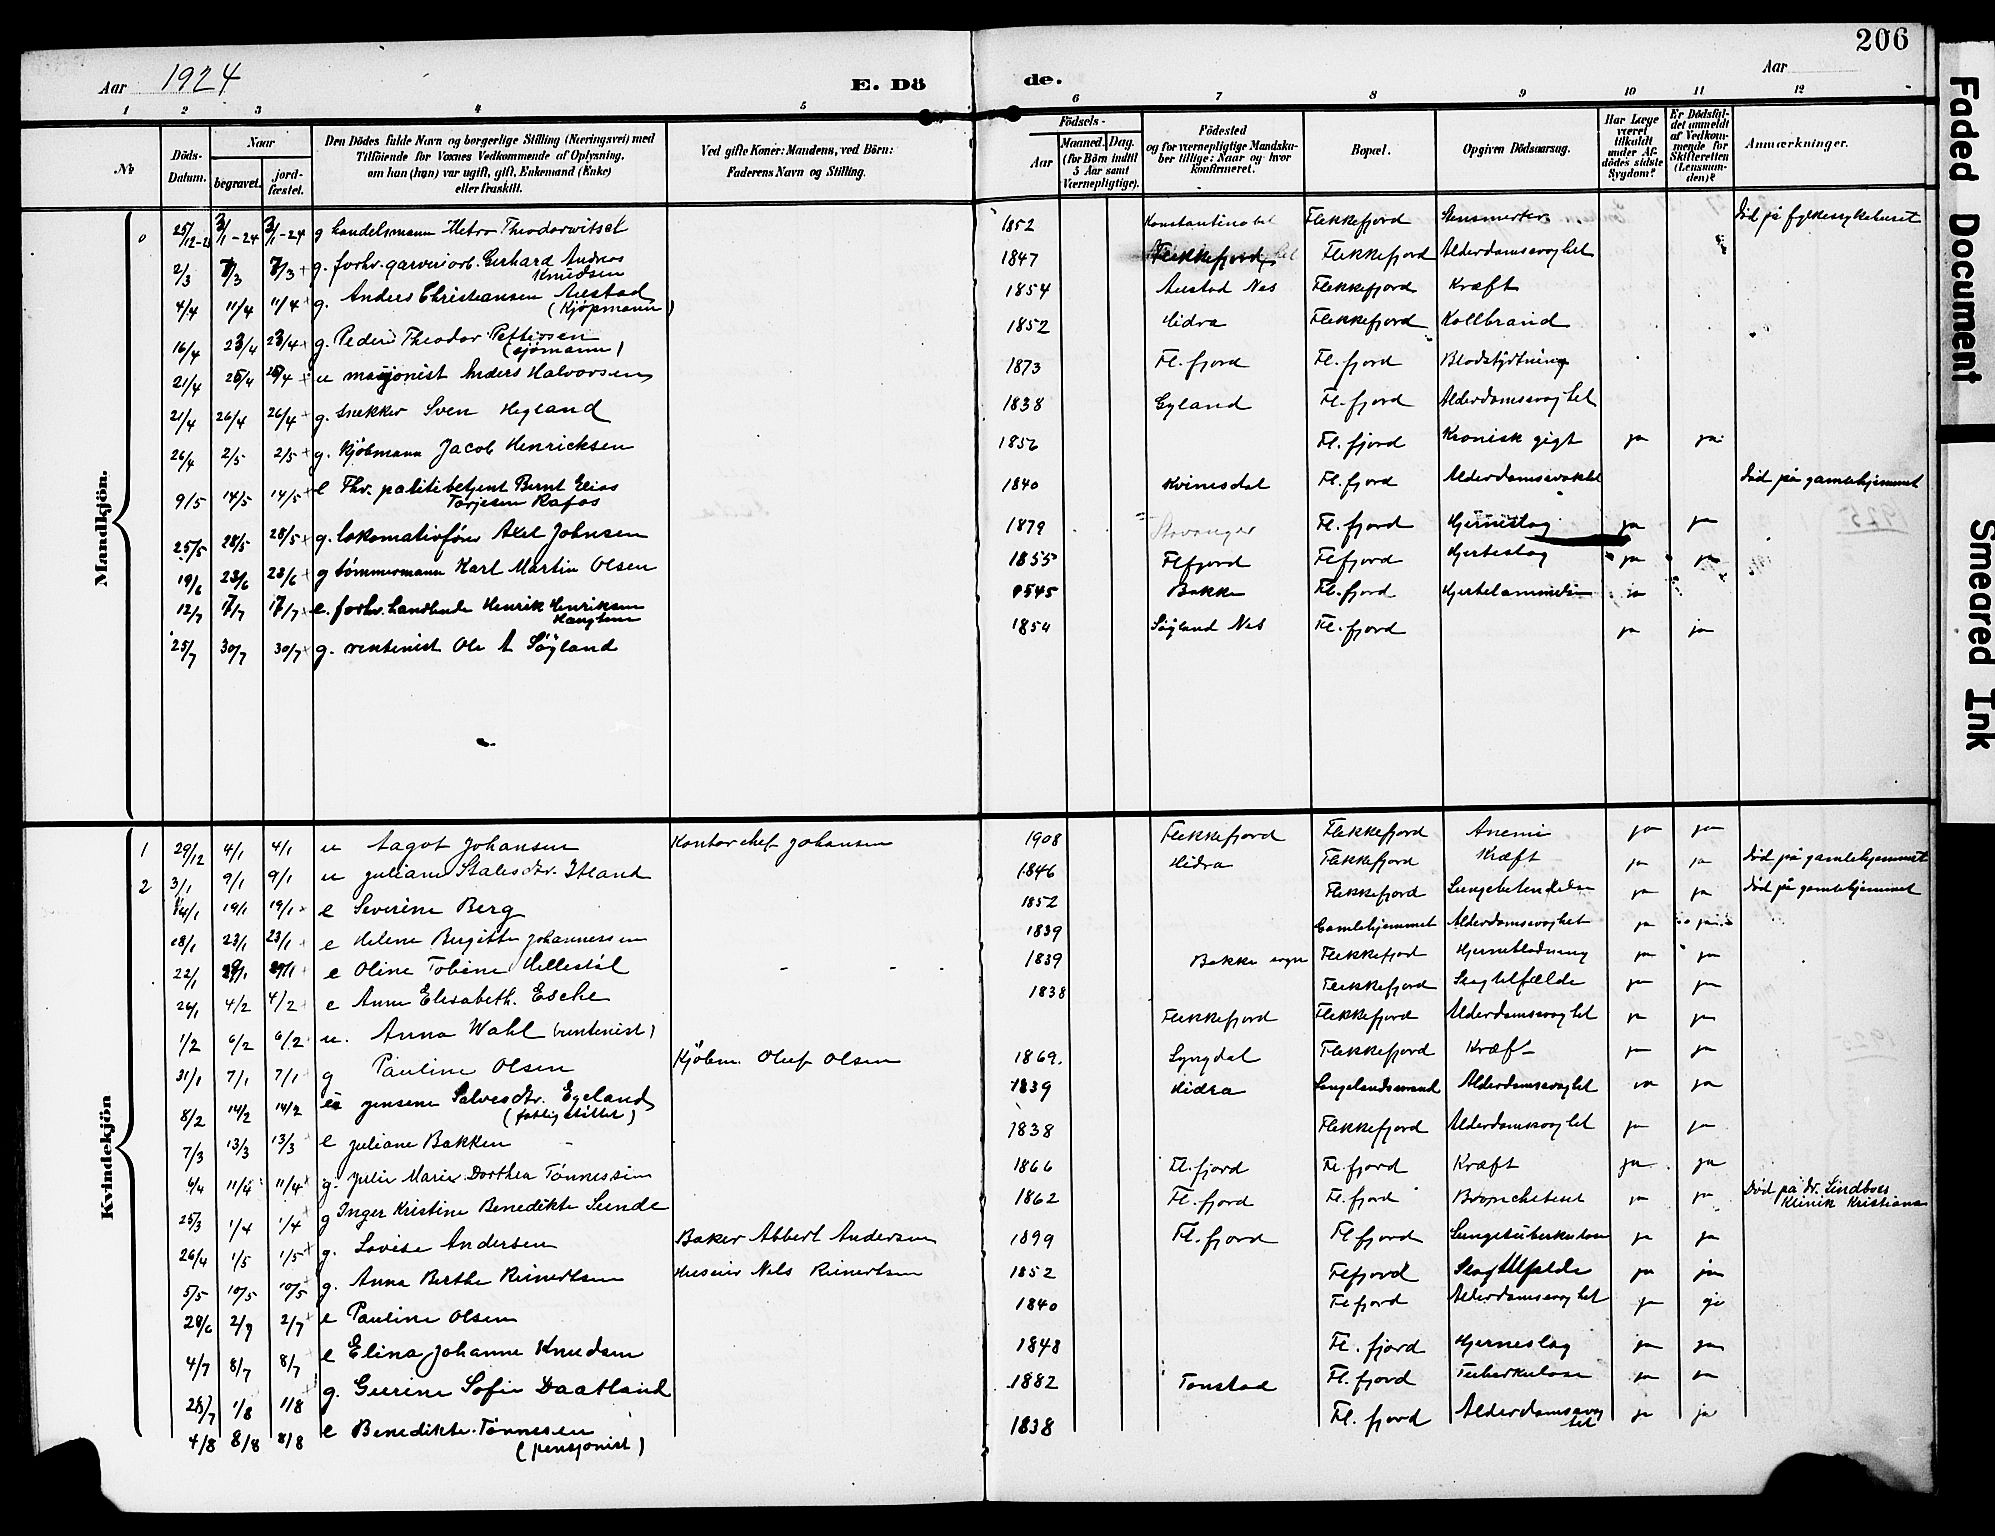 206
Aar 1924
E. Döde.
Aar
1 2 3 4 5 6 7 8 9 10 11 12
№
Döds-Datum.
Naar
begravet.
jordfæstet.
Den Dödes fulde Navn og borgerlige Stilling (Næringsvei) med
Tilföiende for Voxnes Vedkommende af Oplysning,
om han (hun) var ugift, gift, Enkemand (Enke)
eller fraskilt.
Ved gifte Koner: Mandens, ved Börn:
Faderens Navn og Stilling.
Födsels-
Aar
Maaned. Dag.
(for Börn indtil
5 Aar samt
Værnepligtige).
Födested
og for værnepligtige Mandskaber tillige: Naar og hvor
konfirmeret.
Bopæl.
Opgiven Dödsaarsag.
Har Læge
været
tilkaldt
under Afdödes sidste
Sygdom?
Er Dödsfaldet anmeldt
af Vedkommende for
Skifteretten
(Lensmanden)?
Anmærkninger.
Mandkjön.
25/12 3/1-24 3/1-24 g handelsmann 1852 Flekkefjord Død på fylkessykehuset
2/3 7/3 7/3 g. forhv. garveriarb. Gerhard Andreas Knudsen 1847 Flekkefjord Flekkefjord Alderdomssvaghet
4/4 11/4 11/4 g. Anders Christiansen Austad (Kjøpmann) 1854 Austad Nes Flekkefjord Kræft
16/4 23/4 23/4 g. Peder Theodor Pettersen (sjømann) 1852 Hidra Flekkefjord Kollbrand
21/4 25/4 25/4 u Anders Halvorsen 1873 Fl. fjord Fl. fjord Blodstyrtning
21/4 26/4 26/4 g. snekker Sven Hegland 1838 Gyland Fl. fjord Alderdomssvaghet
26/4 2/5 2/5 g. Kjøbmann Jacob Henricksen 1856 Fl. fjord Kronisk gigt ja ja
9/5 14/5 14/5 e Fhv. politibetjent Bernt Elias Torjesen Rafos 1840 Kvinesdal Fl. fjord Død på gamlehjemmet
25/5 28/5 28/5 g. lokomotivfører Axel Johnsen 1879 Stavanger Fl. fjord Hjerneslag ja ja
19/6 23/6 23/6 g tømmermann Karl Martin Olsen 1855 Flfjord Flfjord Hjerteslag ja ja
12/7 17/7 17/7 e. forhv. Henrik Henriksen Bakke Fl. fjord
25/7 30/7 30/7 g. rentenist Ole A Søyland 1854 Søyland Nes Fl. fjord ja ja
Kvindekjön
1 29/12 4/1 4/1 u Aagot Johansen Kontorchef Johansen 1908 Flekkefjord Flekkefjord Anemi ja ja
2 3/1 9/1 9/1 u Juliane Stalesdtr. Itland 1846 Hidra Flekkefjord Kræft ja ja Død på gamlehjemmet
14/1 19/1 19/1 e Severine Berg 1852 Flekkefjord Lungebetendelse ja ja Død på gamlehjemmet
18/1 23/1 23/1 e Helene Birgitte Johannessen 1839 Gamlehjemmet Alderdomssvaghet ja ja
22/1 29/1 29/1 e Oline Tobine Hellestøl 1839 Bakke sogn Flekkefjord Hjerneblødning ja ja
26/1 4/2 4/2 e Anne Elisabeth Esche 1838 Flekkefjord Slagtilfælde ja ja
1/2 6/2 6/2 u. Anna Wahl (rentenist) Flekkefjord Flekkefjord Alderdomssvaghet ja ja
31/1 7/1 7/1 g Pauline Olsen Kjøbm. Oluf Olsen 1869. Lyngdal Flekkefjord Kræft ja ja
8/2 14/2 14/2 Jensene Salvesdtr. Egeland (fattigstøttet) 1839 Hidra Alderdomssvaghet ja ja
7/3 13/3 13/3 e Juliane Bakken 1838 Flekkefjord Alderdomssvaghet ja ja
4/4 11/4 11/4 g. Julie Marie Dorthea Tønnessen 1866 Fl. fjord Fl. fjord Kræft ja ja
25/3 1/4 1/4 g Inger Kristine Benedikte Sunde 1862 Fl. fjord Fl. fjord ja ja Død på dr. Lindboes Klinik Kristiania
26/4 1/5 1/5 g. Lovise Andersen Baker Abbert Andersen 1899 Fl. fjord Fl fjord Lungetuberkulose ja ja
5/5 10/5 10/5 g. Anna Berthe Reinertsen Huseier Nils Reinertsen 1852 Flfjord Slagtilfelde ja ja
28/6 2/7 2/7 e Pauline Olsen 1840 Flfjord Alderdomssvaghet ja
4/7 8/7 8/7 e Elina Johanne Knudsen 1848 Fl. fjord Hjerneslag ja ja
28/7 1/8 1/8 g. Gurine Sofie Daatland 1882 Tonstad Fl. fjord Tuberkulose ja ja
4/8 8/8 8/8 e Benedikte Tønnesen (pensjonist) 1838 Fl. fjord Alderdomssvaghet ja ja
Faded Document
Smeared Ink